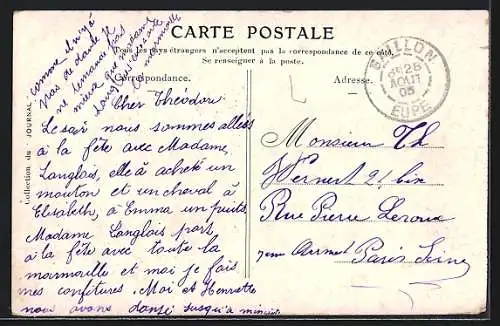 CARTE POSTALE
Tous les pays étrangers n'acceptent pas la correspondance de ce côté.
Se renseigner à la poste.
Correspondance.
Adresse.
Collection du JOURNAL
GAILLON
28
AOUT
05
EURE
comme d'ici
pas de danse je
ne demande pas
mieux que
marmaille
Cher Théodore
Le soir nous sommes allées
à la fête avec Madame
Langlois, elle a acheté un
mouton et un cheval à
Elisabeth, à Emma un puits,
Madame Langlois part
à la fête avec toute la
marmaille et moi je fais
mes confitures. Moi et Henriette
nous avons dansé jusqu'à minuit
Monsieur Th
Wernert 21 bis
Rue Pierre Leroux
7em Paris Seine